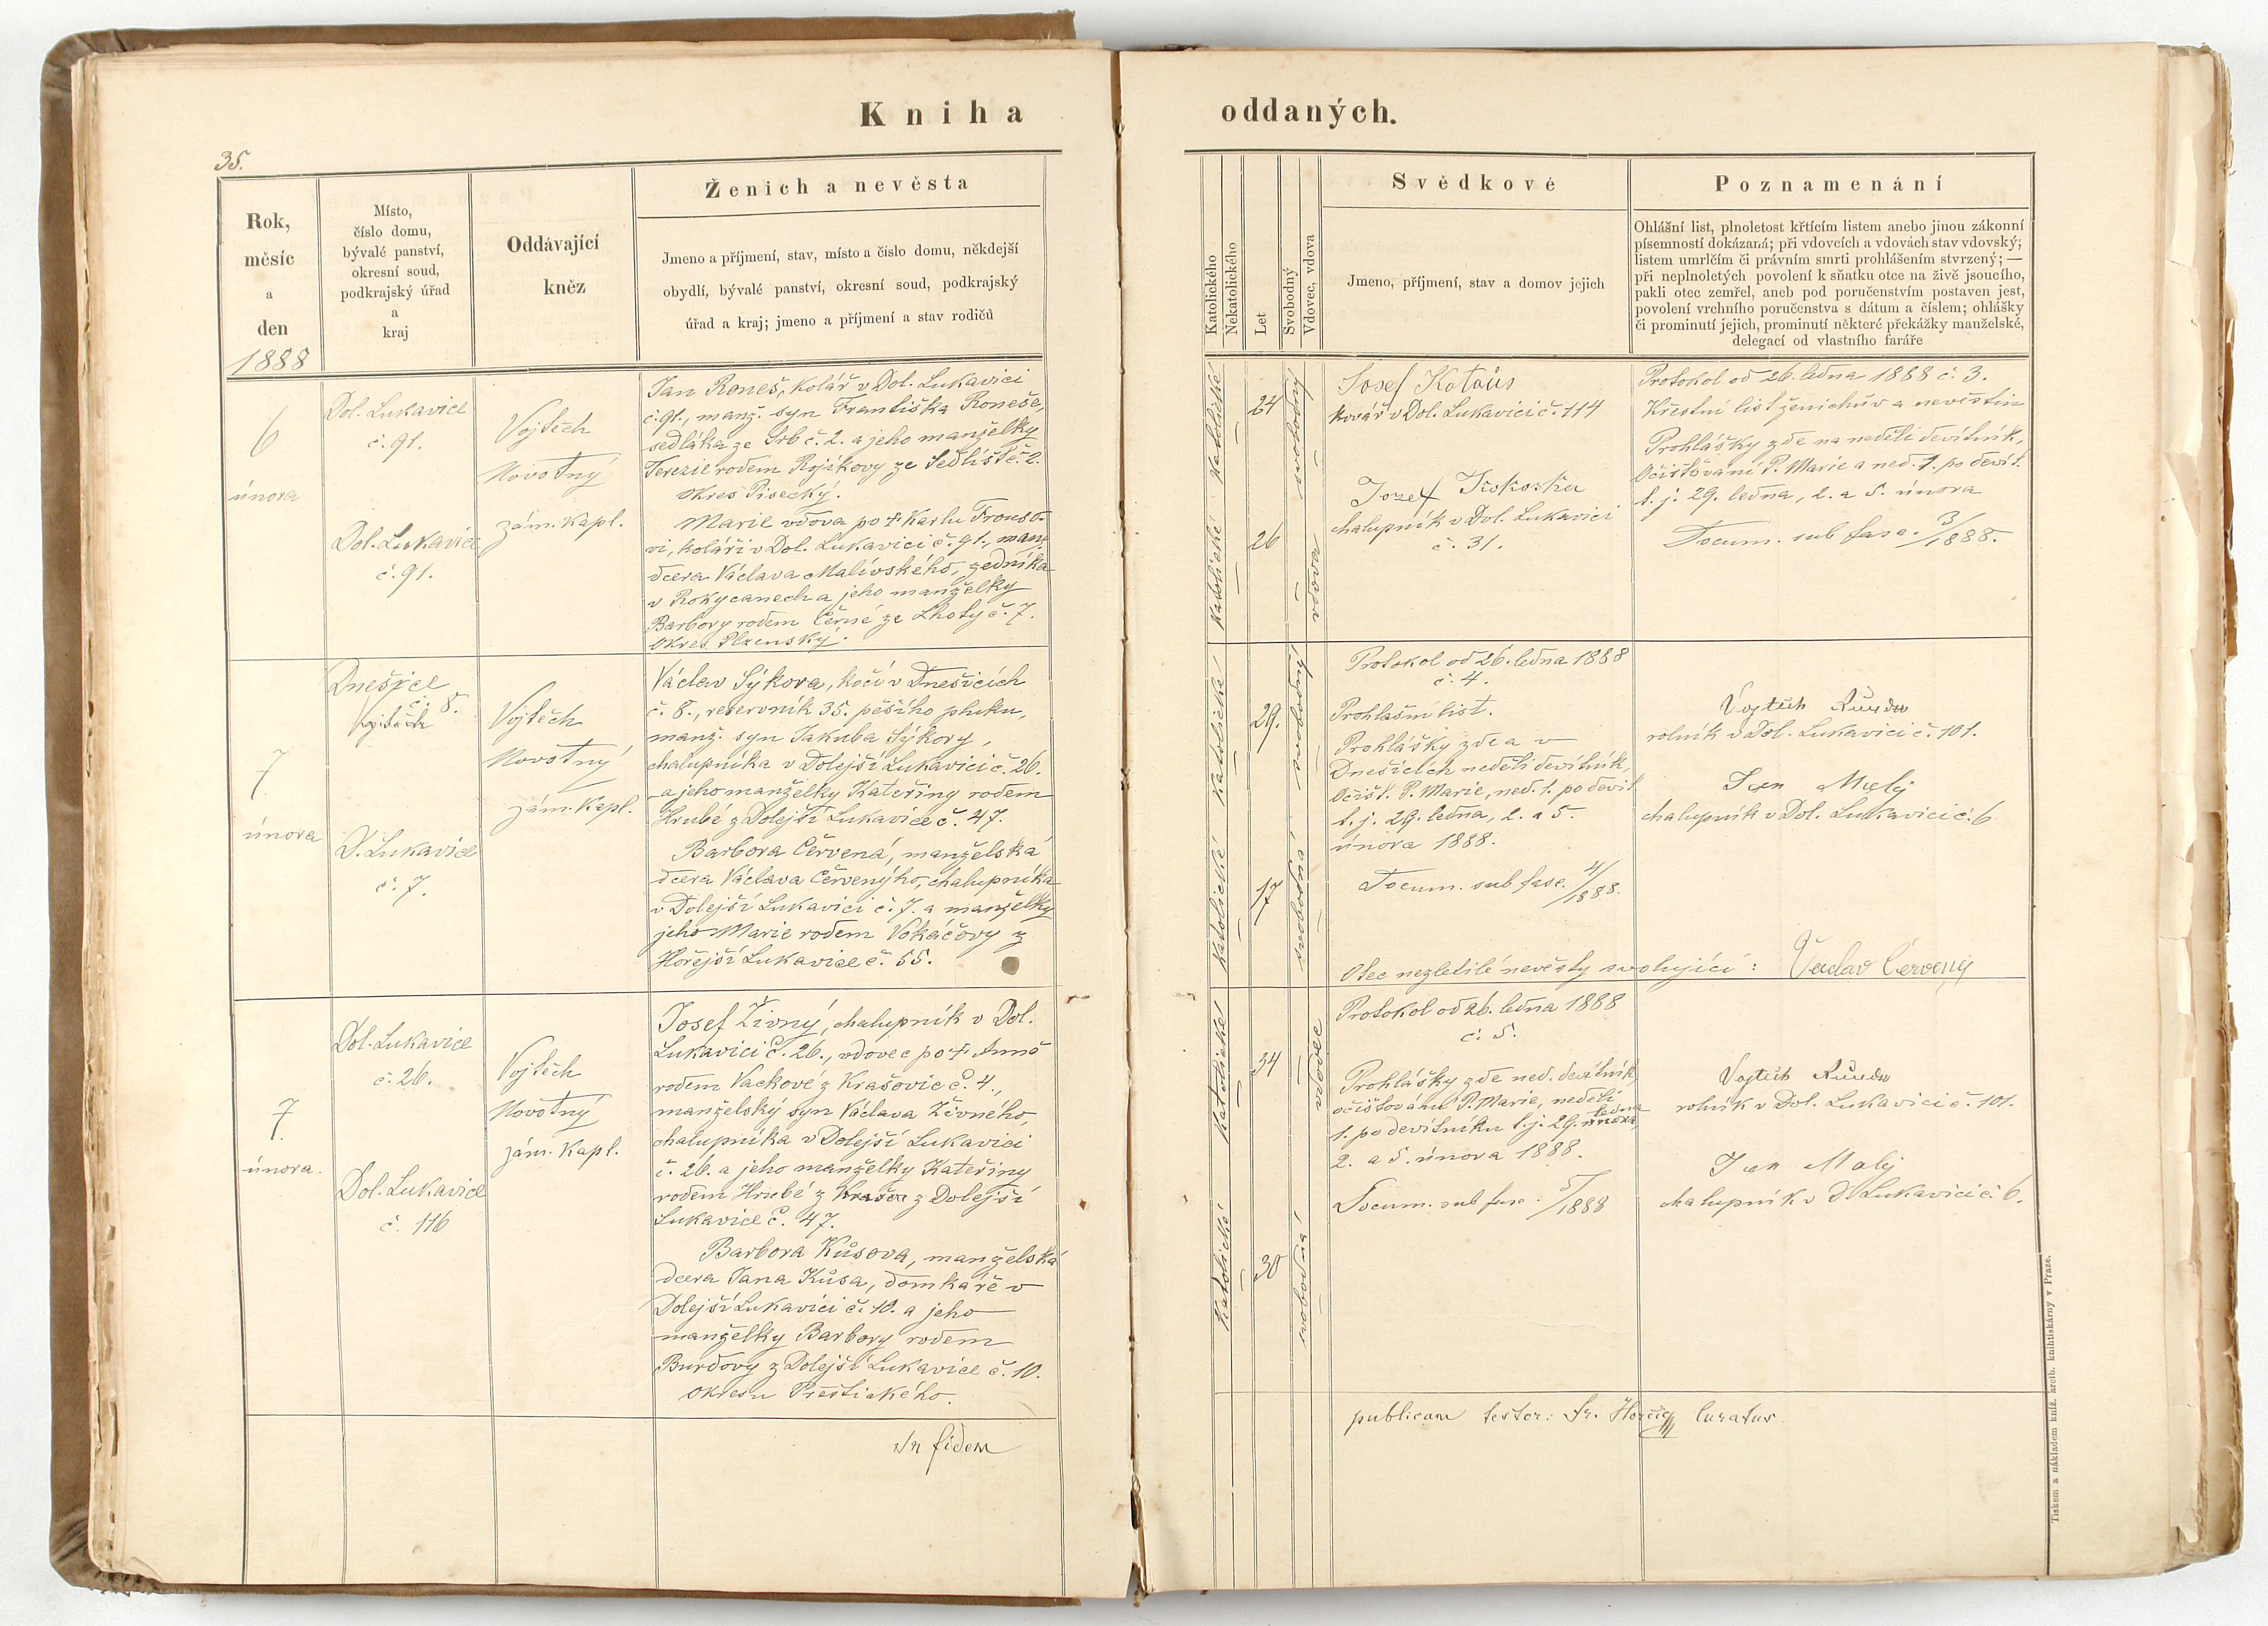 Kniha oddaných.
35.
Rok,
měsíc
a
den
1888
Místo,
číslo domu,
bývalé panství,
okresní soud,
podkrajský úřad
a
kraj
Oddávající
kněz
Ženich a nevěsta
Jmeno a příjmení, stav, místo a číslo domu, někdejší
obydlí, bývalé panství, okresní soud, podkrajský
úřad a kraj; jmeno a příjmení a stav rodičů
Katolického
Nekatolického
Let
Svobodný
Vdovec, vdova
Svědkové
Jmeno, příjmení, stav a domov jejich
Poznamenání
Ohlášní list, plnoletost křtícím listem anebo jinou zákonní
písemností dokázaná; při vdovcích a vdovách stav vdovský;
listem umrlčím či právním smrti prohlášením stvrzený; —
při neplnoletých povolení k sňatku otce na živě jsoucího,
pakli otec zemřel, aneb pod poručenstvím postaven jest,
povolení vrchního poručenstva s dátum a číslem; ohlášky
či prominutí jejich, prominutí některé překážky manželské,
delegací od vlastního faráře
6
února
Dol. Lukavice
č. 91.
Dol. Lukavice
č. 91.
Vojtěch
Novotný
zám. kapl.
Jan Roneš, kolář v Dol. Lukavici
č. 91., manž. syn Františka Roneše,
sedláka ze Srb č. 2. a jeho manželky
Terezie rodem Rojíkovy ze Sedlíště č. 2.
okres Písecký.
Marie vdova po + Karlu Frouso-
vi, koláři v Dol. Lukavici č. 91., manž.
dcera Václava Malivského, zedníka
v Rokycanech a jeho manželky
Barbory rodem Černé ze Lhoty č. 7.
okres Plzenský.
katolické
24
svobodný
katolické
26
vdova
Josef
kovář v Dol. Lukavici č. 114
Josef Kokoska
chalupník v Dol. Lukavici
č. 31.
Protokol od 26. ledna 1888 č. 3.
Křestní list ženichův a nevěstin
Prohlášky zde na neděli devítník,
Očišťování P. Marie a ned. 1. po devít.
t. j. 29. ledna, 2. a 5. února
Docum. sub fasc. 3/1888.
7
února
Dnešice
č. 8.
D. Lukavice
č. 7.
Vojtěch
Novotný
zám. kapl.
Václav Sýkora, kočí v Dnešicích
č. 8., reservník 35. pěšího pluku,
manž. syn Jakuba Sýkory,
chalupníka v Dolejší Lukavici č. 26.
a jeho manželky Kateřiny rodem
Hrubé z Dolejší Lukavice č. 47.
Barbora Červená, manželská
dcera Václava Červenýho, chalupníka
v Dolejší Lukavici č. 7. a manželky
jeho Marie rodem Vokáčovy z
Hořejší Lukavice č. 55.
katolické
29.
svobodný
katolické
17
svobodná
Protokol od 26. ledna 1888
č. 4.
Prohlašní list.
Prohlášky zde a v
Dnešicích neděli devítník,
Očišť. P. Marie, ned. 1. po devít
t. j. 29. ledna, 2. a 5.
února 1888.
Docum. sub fasc. 4/1888.
Vojtěch
rolník v Dol. Lukavici č. 101.
Jan Malý
chalupník v Dol. Lukavici č. 6
Otec nezletilé nevěsty svolující: Václav Červený
7
února.
Dol. Lukavice
č. 26.
Dol. Lukavice
č. 116
Vojtěch
Novotný
zám. kapl.
Josef Živný, chalupník v Dol.
Lukavici č. 26., vdovec po + Anně
rodem Vackové z Krašovic č. 4.,
manželský syn Václava Živného,
chalupníka v Dolejší Lukavici
č. 26. a jeho manželky Kateřiny
rodem Hrubé z Krašov z Dolejší
Lukavice č. 47.
Barbora Kůsova, manželská
dcera Jana Kůsa, domkáře v
Dolejší Lukavici č. 10. a jeho
manželky Barbory rodem
Burdovy z Dolejší Lukavice č. 10.
okresu Přeštického.
katolické
34
vdovec
katolické
30
svobodná
Protokol od 26. ledna 1888
č. 5.
Prohlášky zde ned. devítník,
očišťování P. Marie, neděli
1. po devítníku t. j. 29. ledna
2. a 5. února 1888.
Docum. sub fasc. 5/1888
Vojtěch
rolník v Dol. Lukavici č. 101.
Jan Malý
chalupník v D. Lukavici č. 6.
In fidem
publicam testor: Fr. curatus
Tiskem a nákladem kníž. arcib. knihtiskárny v Praze.